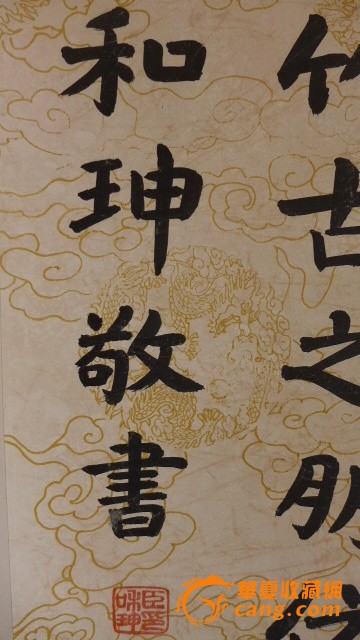 竹古之朋
和珅敬書
臣和珅
華夏收藏網
cang.com